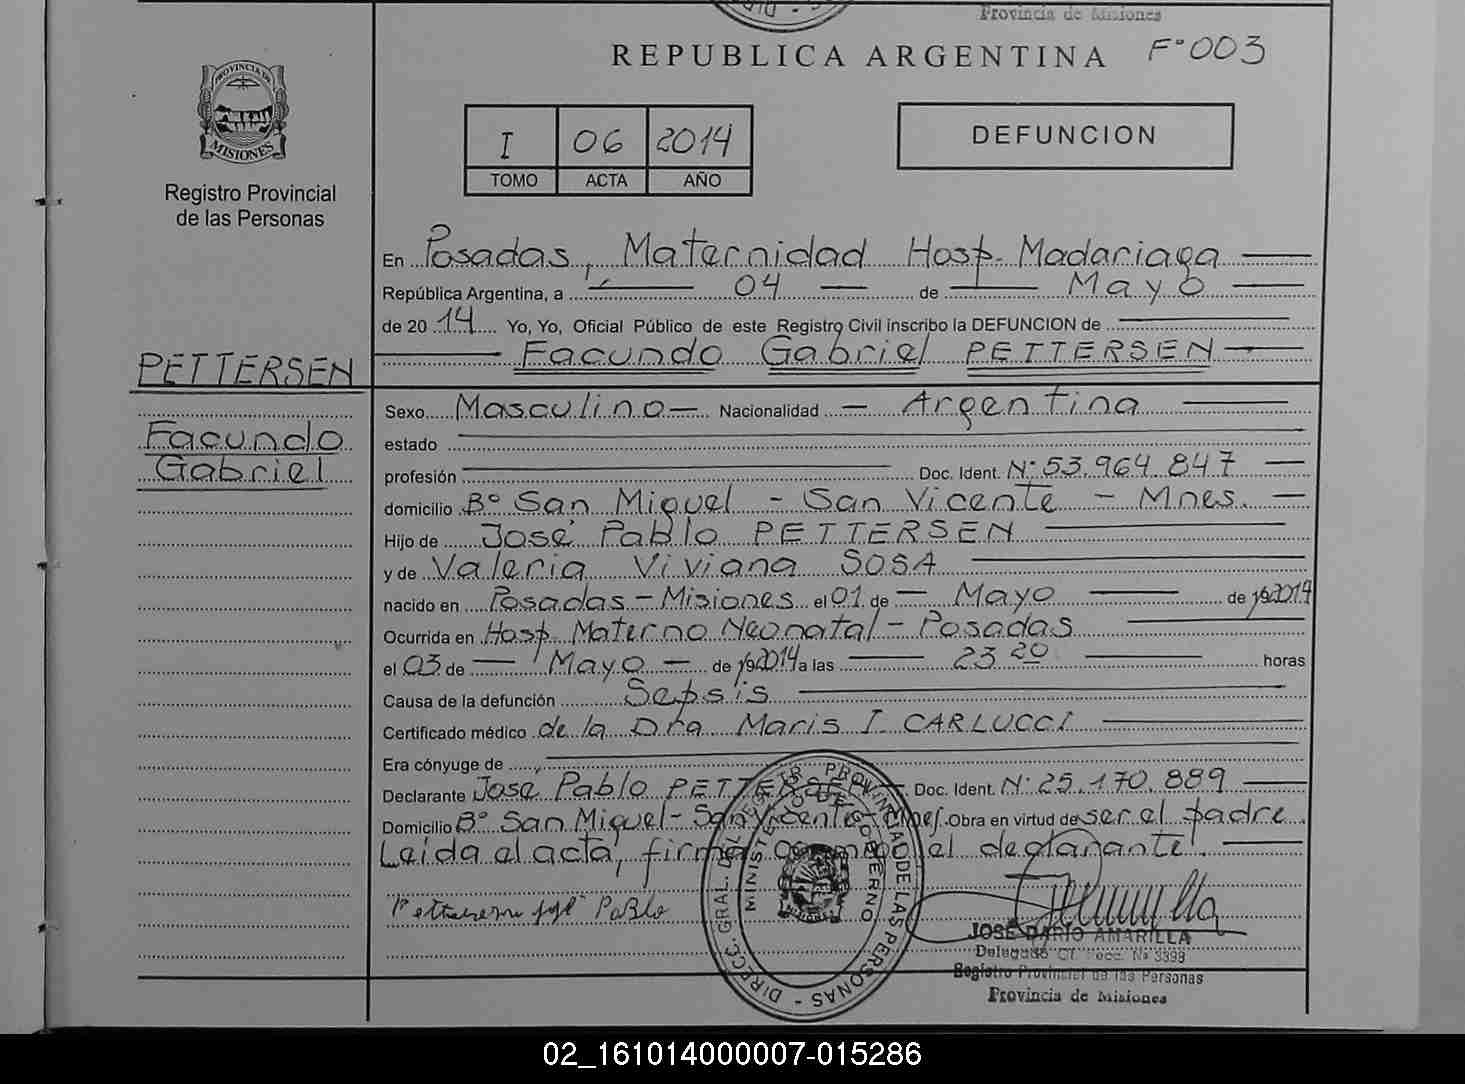 Provincia de Misiones
REPUBLICA ARGENTINA F°003
PROVINCIA DE
MISIONES
Registro Provincial
de las Personas
I 06 2014
TOMO ACTA AÑO
DEFUNCION
En Posadas, Maternidad Hosp. Madariaga
República Argentina, a 04 de Mayo
de 20 14 Yo, Yo, Oficial Público de este Registro Civil inscribo la DEFUNCION de
Facundo Gabriel PETTERSEN
PETTERSEN
Facundo
Gabriel
Sexo Masculino Nacionalidad Argentina
estado
profesión Doc. Ident. N: 53.964.847
domicilio B° San Miguel - San Vicente - Mnes.
Hijo de José Pablo PETTERSEN
y de Valeria Viviana SOSA
nacido en Posadas - Misiones el 01 de Mayo de 2014
Ocurrida en Hosp. Materno Neonatal - Posadas
el 03 de Mayo de 2014 a las 23 20 horas
Causa de la defunción Sepsis
Certificado médico de la Dra Maris I CARLUCCI
Era cónyuge de
Declarante José Pablo PETTERSEN Doc. Ident. N: 25.170.889
Domicilio B° San Miguel - San Vicente - Mnes. Obra en virtud de ser el padre.
Leída el acta, firma conmigo el declarante.
Pettersen José Pablo
DIRECC. GRAL. DEL REGISTR. PROVINCIAL DE LAS PERSONAS -
MINISTERIO DE GOBIERNO
JOSE DARIO AMARILLA
Delegado Nº 3398
Registro Provincial de las Personas
Provincia de Misiones
02_161014000007-015286